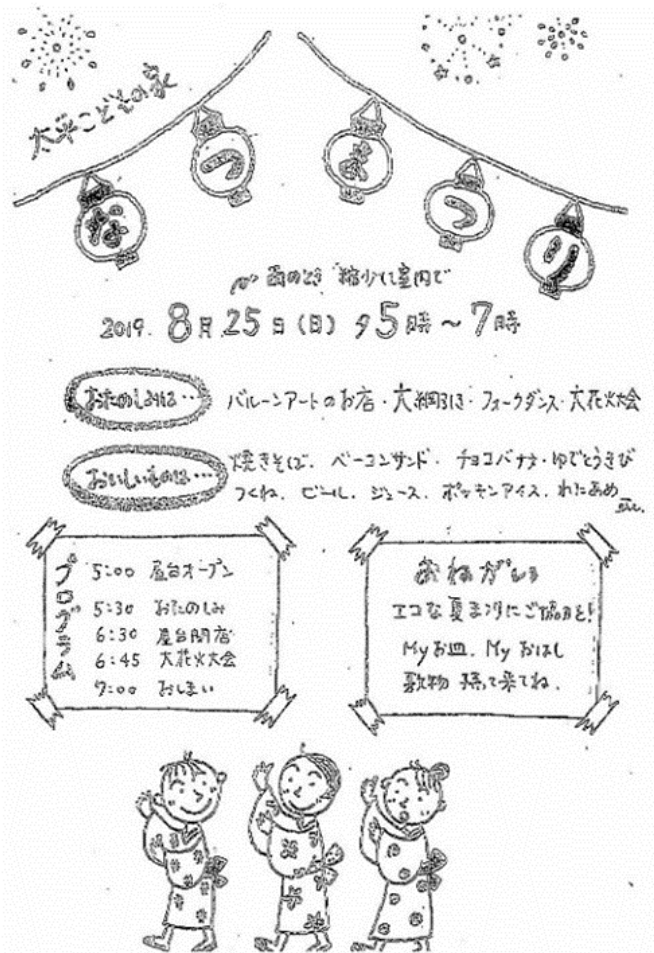 太平こどもの家
なつまつり
雨のとき 縮少して室内で
2019. 8月 25日(日) 夕5時～7時
おたのしみは… バルーンアートのお店・大綱引き・フォークダンス・大花火大会
おいしいものは… 焼きそば. ベーコンサンド. チョコバナナ・ゆでとうきび
つくね. ビール. ジュース. ポッキンアイス. わたあめ etc.
プログラム
5:00 屋台オープン
5:30 おたのしみ
6:30 屋台閉店
6:45 大花火大会
7:00 おしまい
おねがい
エコな夏まつりにご協力を!
Myお皿. My おはし
敷物 持って来てね.